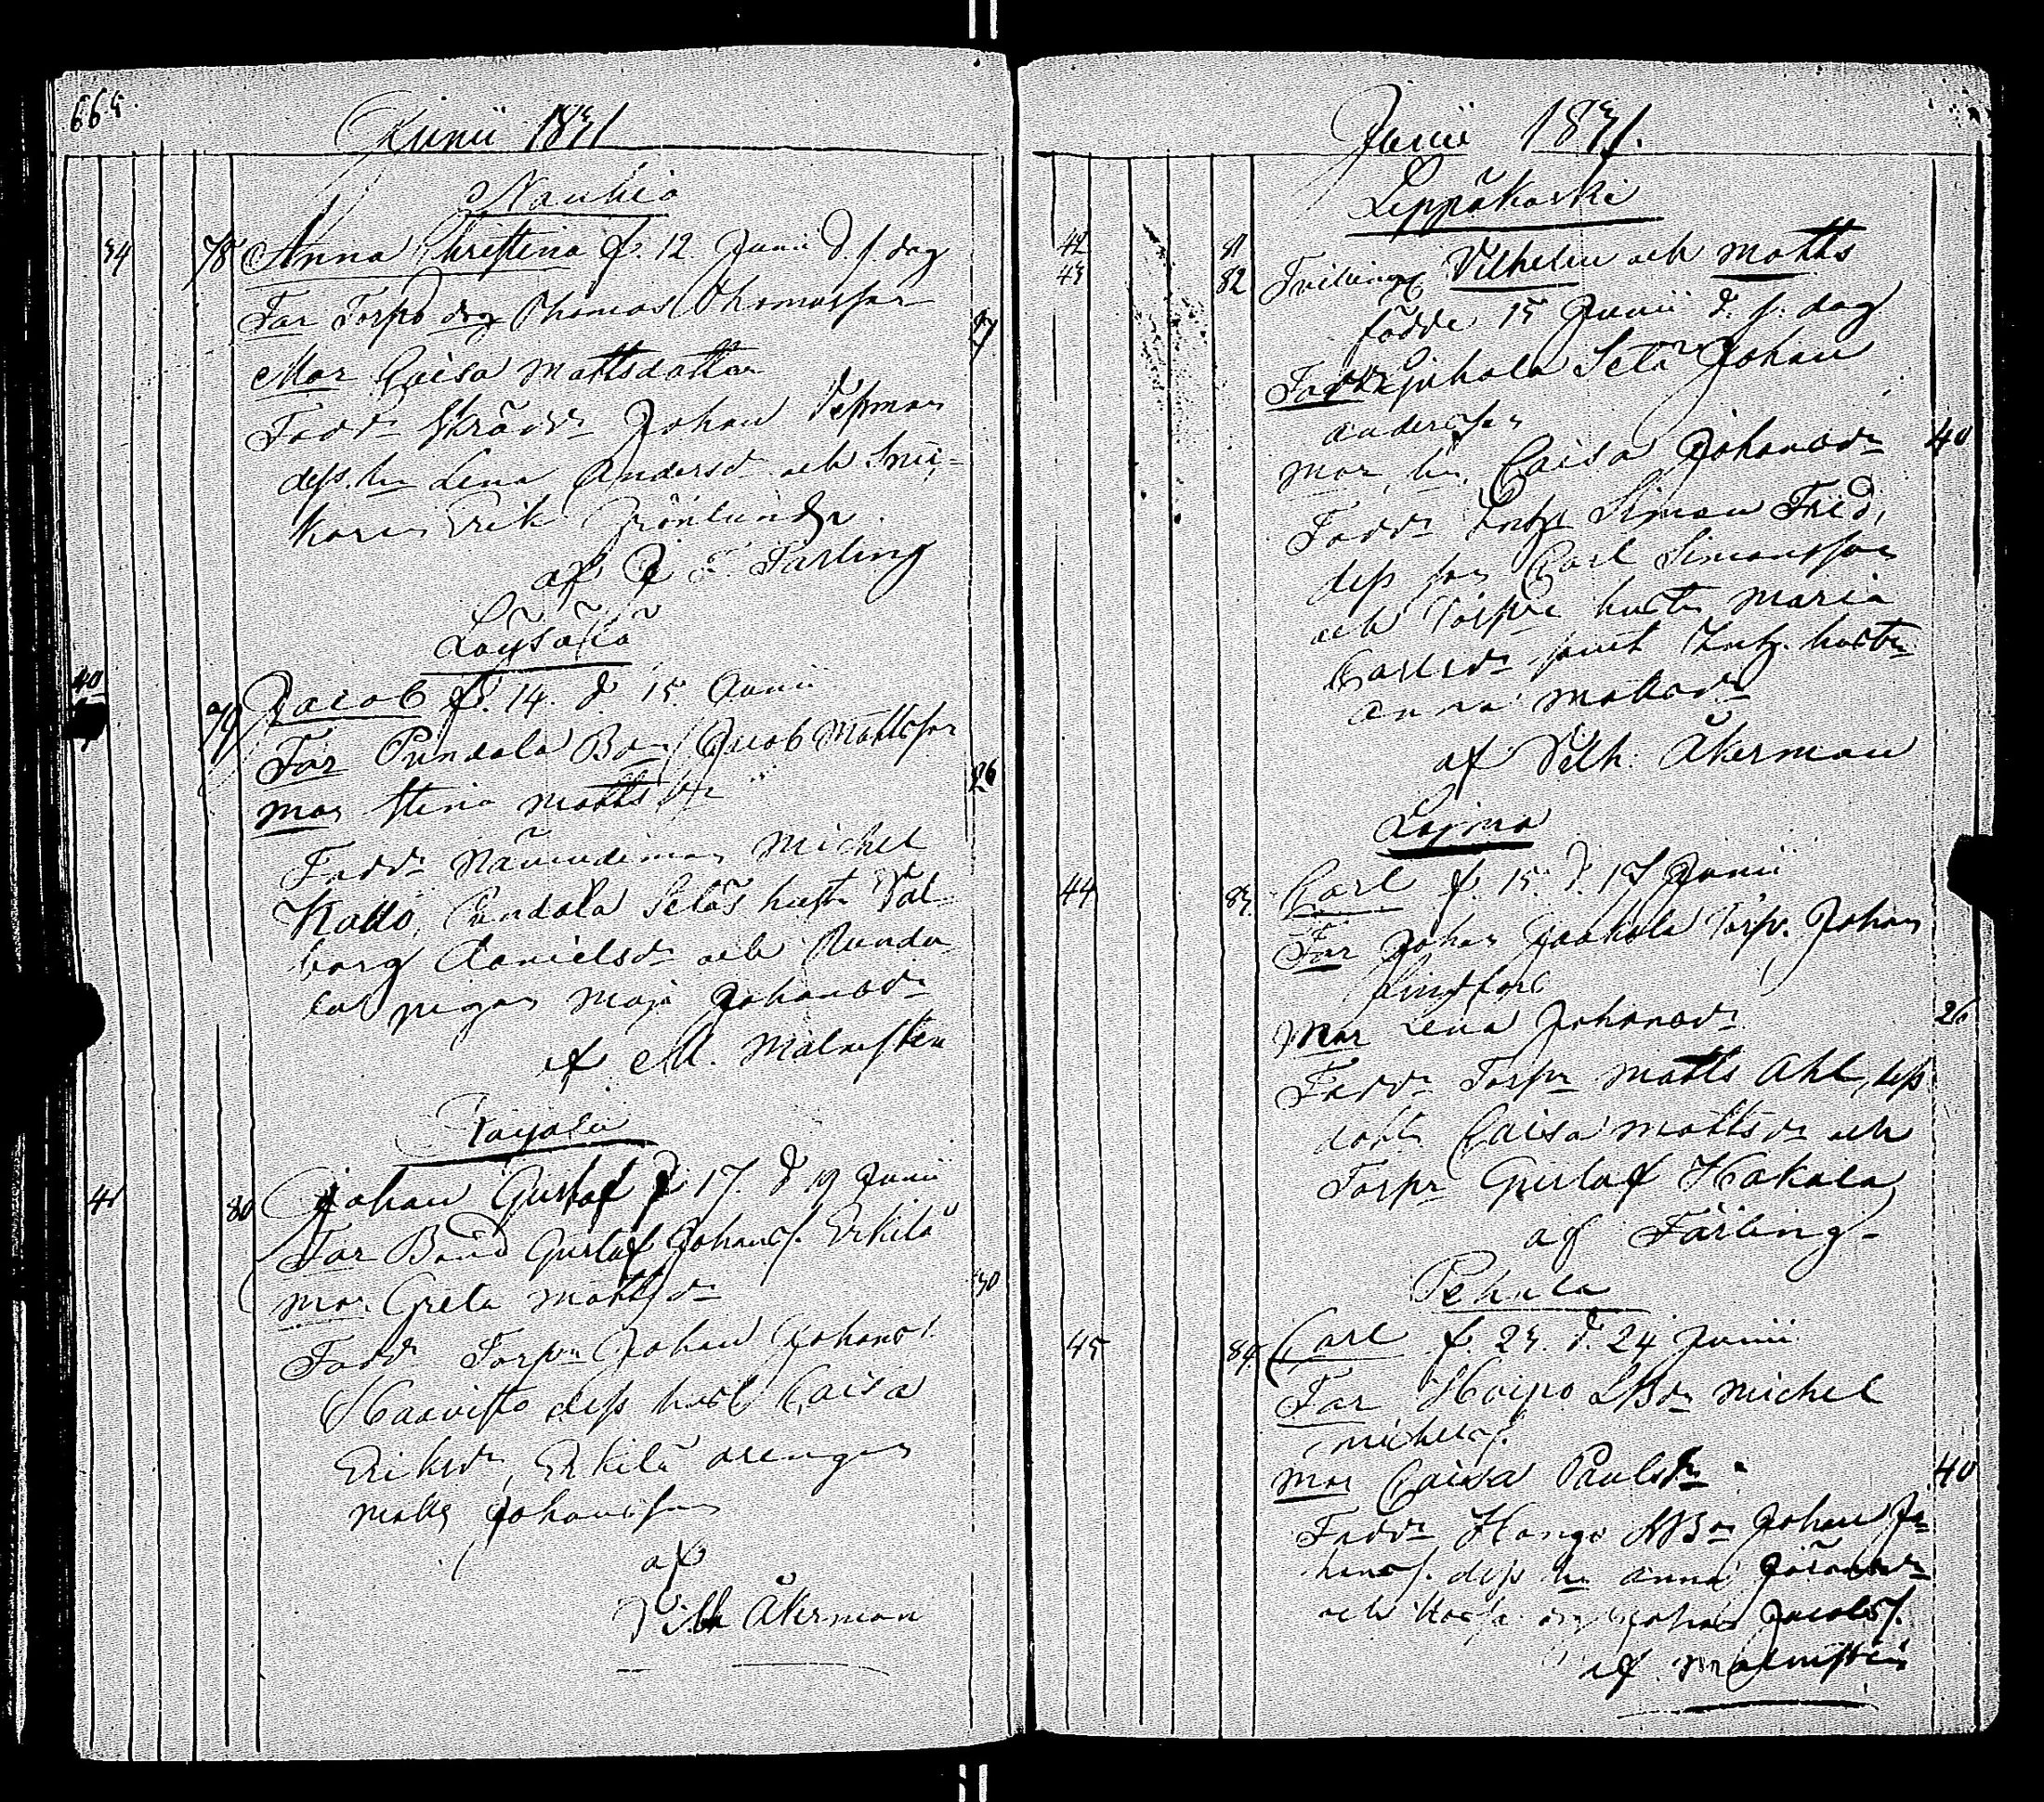 665.
Junii 1831
Nauhia
34 78 Anna Christina f. 12. Junii d. s. dag
Far Torpdrg Thomas Thomasson
27
Mor Caisa Mattsdotter
Fadd: Skrädd: Johan
dess hu Lena Andersd: och Snic-
karen Erik Grönlund
af J F Färling
Löysäkä
40 79 Jacob f. 14. d. 15. Junii
Far Pundola Bon. Jacob Mattsson
26
Mor Stina Mattsdr
Fadd: Nämndeman Michel
Kallo, Pundola Setäs hustr Val-
borg Danielsdr och Punda-
las pigan Maja Johansdr
af M. Malmsten
41 80 Johan Gustaf f. 17. d 19 Junii
Far Bond Gustaf Johans. Erkilä
30
Mor Greta Mattsdr
Fadd: Torpr Johan Johans.
Haavisto dess hust Caisa
Eriksdr, Erkilä drengen
Matts Johansson
af
Vilh Åkerman
Junii 1831.
Leppäkoski
42 81
43 82 Tvilling Vilhelm och Matts
födde 15 Junii d. s. dag
Johan
Andersson
Mor, hu, Caisa Johansdr
40
Fadd: Simon Frid,
dess son Carl Simonsson
och Torpre hustr Maria
Carlsdr samt hustr
Anna Mattsdr
af Vilh. Åkerman
Lajma
44 83. Carl f. 15. d. 17 Junii
Far Johan Jaakola Torp. Johan
Lindfors
Mor Lena Johansdr
26
Fadd: Torpr Matts Ahl, dess
dottr Caisa Mattsdr och
Torpr Gustaf Hakala
af Färling
Pehula
45 84. Carl f. 23. d. 24 Junii
Far Hoipo Michel
Michels.
Mor Caisa Paulsdr
40
Fadd: Hongo Johan Jo-
hans. dess hu Anna Göransdr
och Johan Jacobs.
af Malmsten